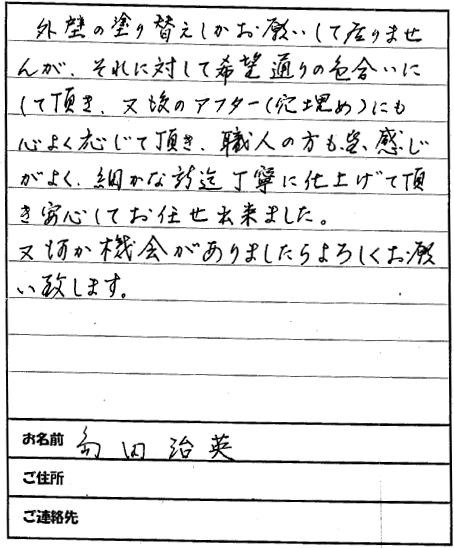 外壁の塗り替えしかお願いして居りませ
んが、それに対して希望通りの色合いに
して頂き、又後のアフター(穴埋め)にも
心よく応じて頂き、職人の方も皆、感じ
がよく、細かな所迄丁寧に仕上げて頂
き安心してお任せ出来ました。
又何か機会がありましたらよろしくお願
い致します。
お名前 田治英
ご住所
ご連絡先